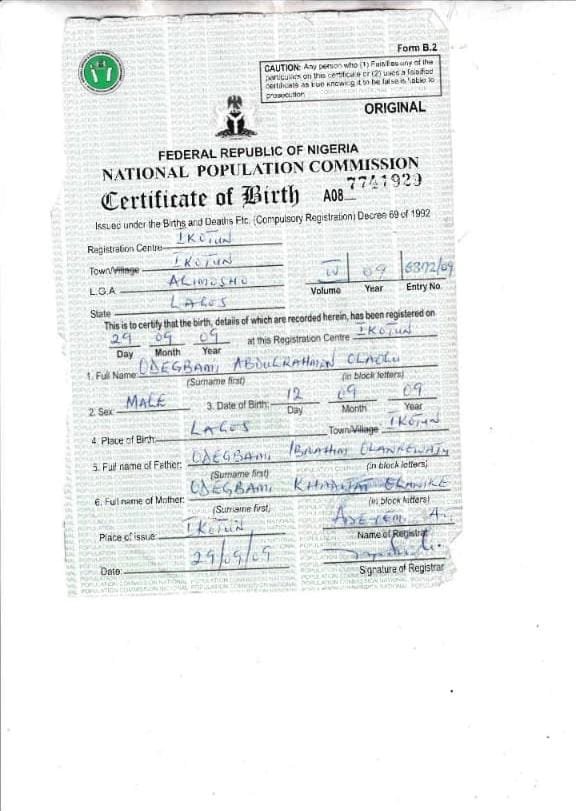 Form B.2
CAUTION: Any person who (1) Falsifies any of the
particulars on this certificate or (2) uses a falsified
certificate as true knowing it to be false is liable to
prosecution
ORIGINAL
FEDERAL REPUBLIC OF NIGERIA
NATIONAL POPULATION COMMISSION
Certificate of Birth A08 7741929
Issued under the Births and Deaths Etc. (Compulsory Registration) Decree 69 of 1992
Registration Centre IKOTUN
Town/Village IKOTUN
L.G.A ALIMOSHO
State LAGOS
Volume IV Year 09 Entry No. 6372/09
This is to certify that the birth, details of which are recorded herein, has been registered on
29 09 09 at this Registration Centre IKOTUN
Day Month Year
1. Full Name: ODEGBAMI ABDULRAHMON OLAOLU
(Surname first) (in block letters)
2. Sex: MALE 3. Date of Birth: 12 09 09
Day Month Year
4. Place of Birth: LAGOS Town/Village IKOTUN
5. Full name of Father: ODEGBAMI IBRAHIM OLANREWAJU
(Surname first) (in block letters)
6. Full name of Mother: ODEGBAMI
(Surname first) (in block letters)
Place of issue: IKOTUN
Name of Registrar
Date: 29/09/09
Signature of Registrar